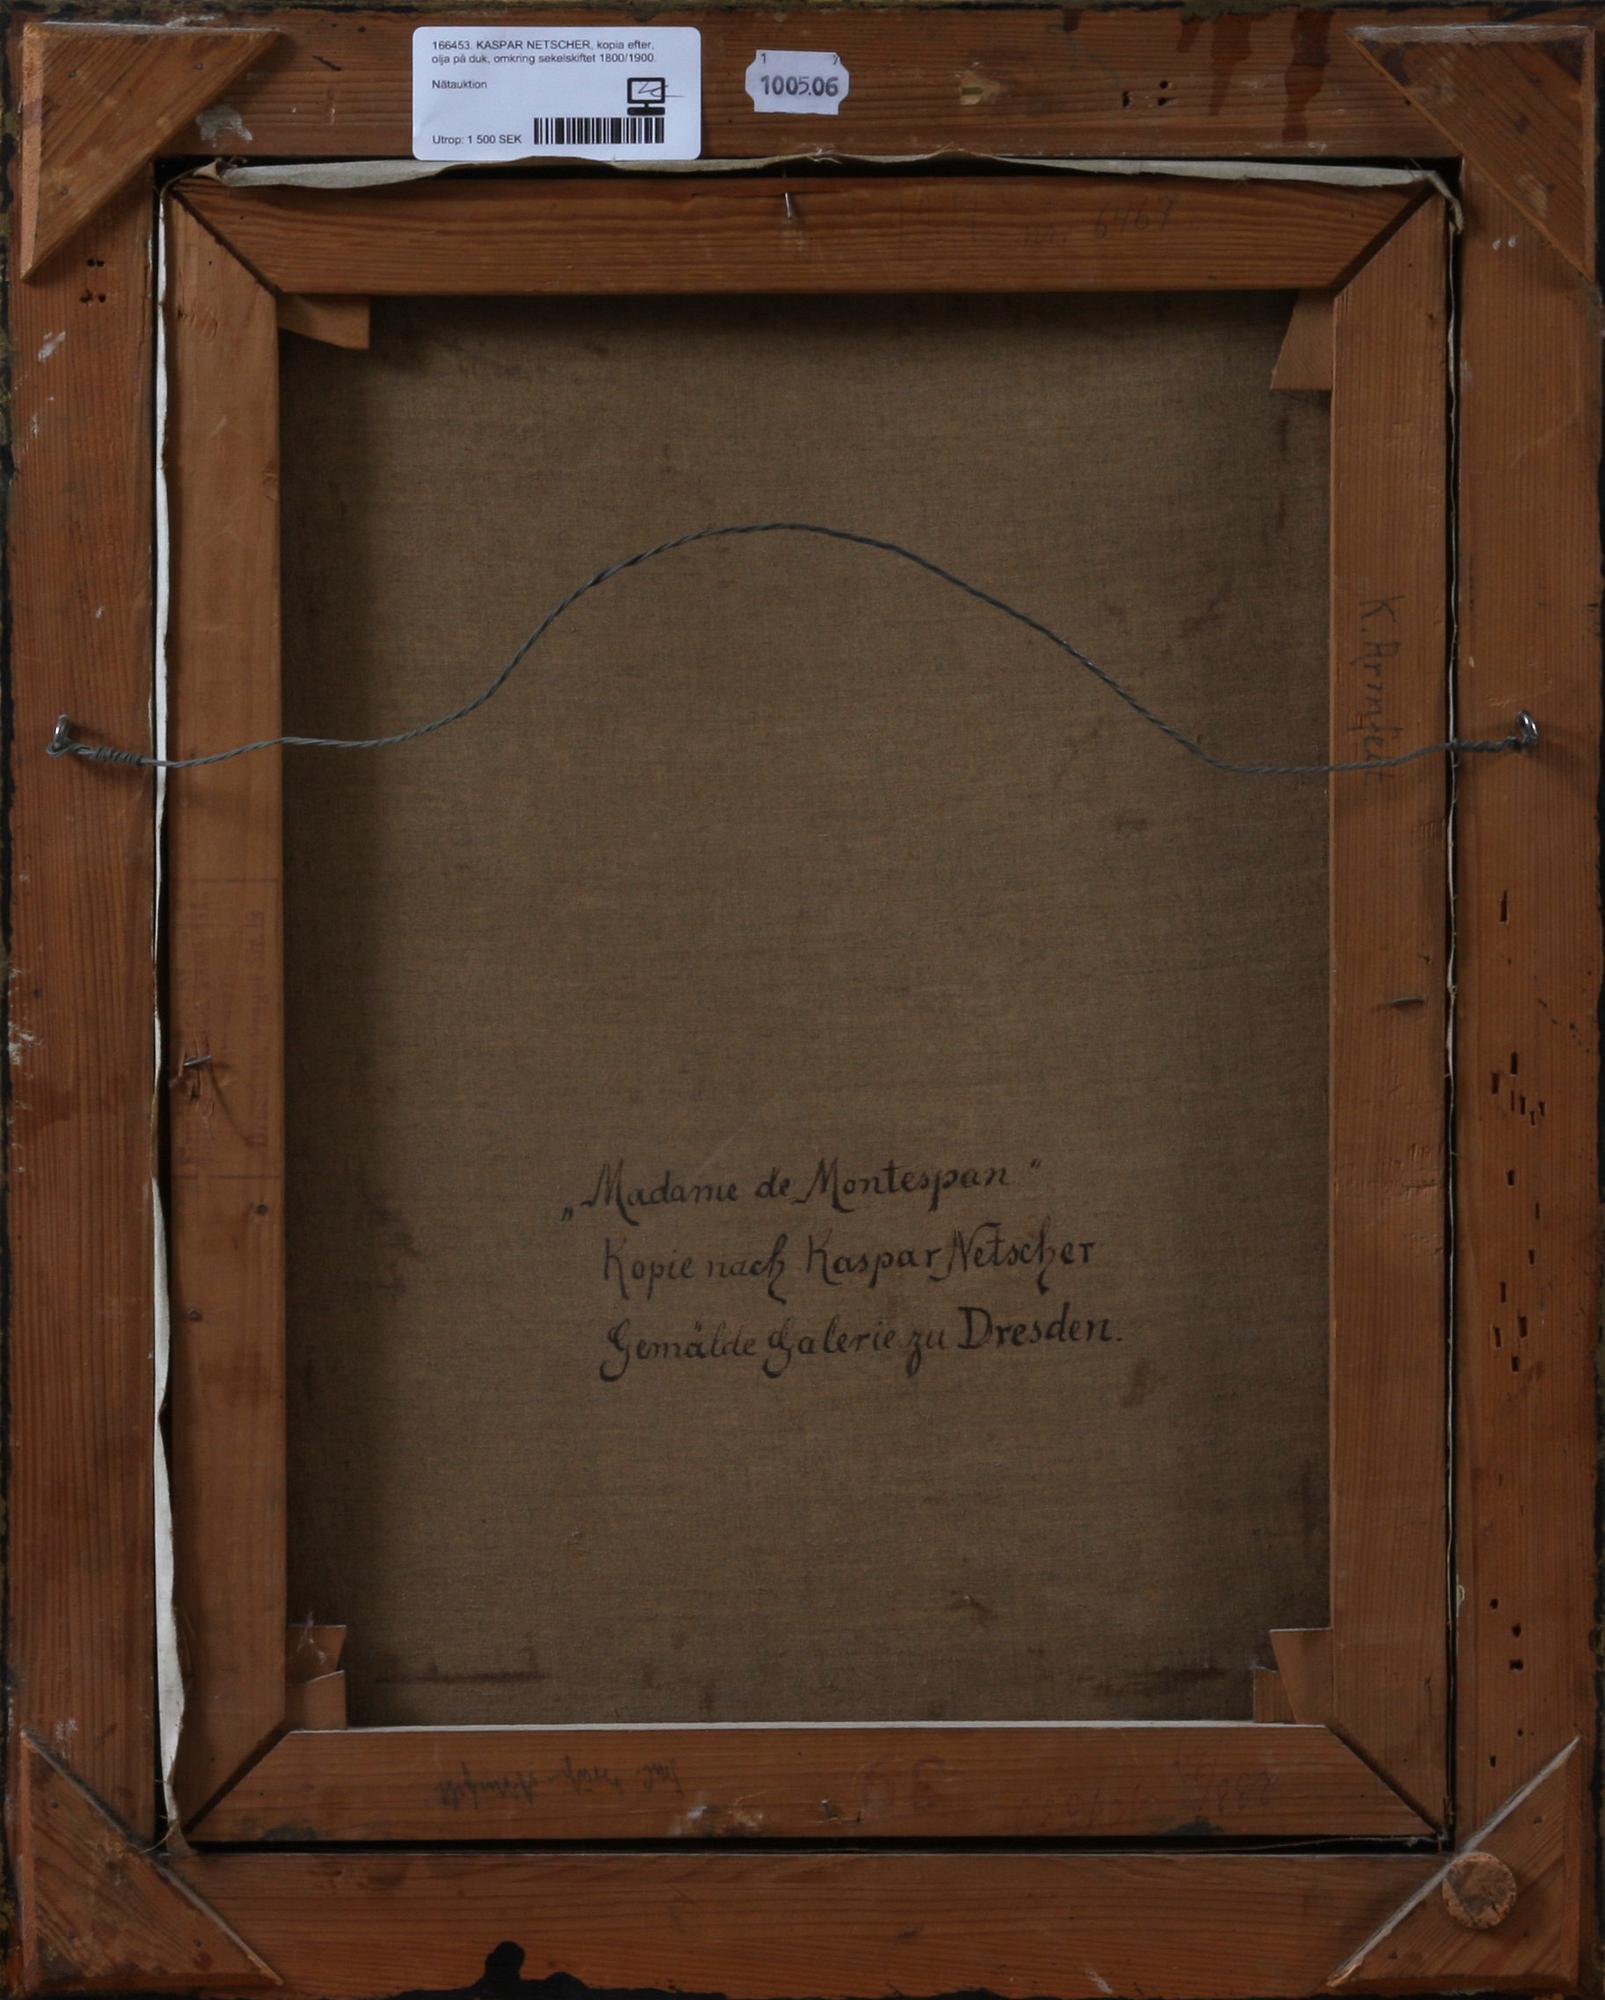 166453. KASPAR NETSCHER, kopia efter,
olja på duk, omkring sekelskiftet 1800/1900.
Nätauktion
Utrop: 1 500 SEK
1 7
1005.06
no. 6467
K. Armfelt
„Madame de Montespan“
Kopie nach Kaspar Netscher
Gemälde Galerie zu Dresden.
39